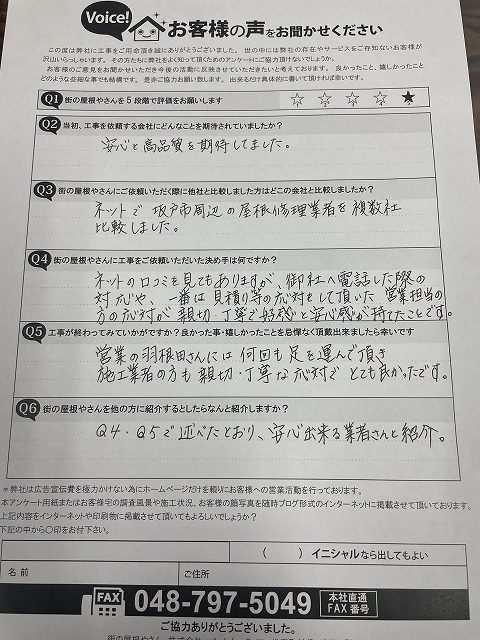 Voice!
お客様の声をお聞かせください
この度は弊社に工事をご用命頂き誠にありがとうございました。世の中には弊社の存在やサービスをご存知ないお客様が
沢山いらっしゃいます。その方たちに弊社をよく知って頂くためのアンケートにご協力頂けないでしょうか。
お客様のご意見をお聞かせいただき今後の活動に反映させていただきたいと考えております。良かったこと、嬉しかったこと
どのような些細な事でも結構です。是非ご協力お願い致します。出来るだけ具体的に書いて頂ければ幸いです。
Q1 街の屋根やさんを5段階で評価をお願いします ☆ ☆ ☆ ☆ ★
Q2 当初、工事を依頼する会社にどんなことを期待されていましたか?
安心と高品質を期待してました。
Q3 街の屋根やさんにご依頼いただく際に他社と比較しました方はどこの会社と比較しましたか?
ネットで坂戸市周辺の屋根修理業者を複数社
比較しました。
Q4 街の屋根やさんに工事をご依頼いただいた決め手は何ですか?
ネットの口コミを見てもありますが、御社へ電話した際の
対応や、一番は見積り等の応対をして頂いた営業担当の
方の応対が親切・丁寧で好感と安心感が持てたことです。
Q5 工事が終わってみていかがですか?良かった事・嬉しかったことを忌憚なく頂戴出来ましたら幸いです
営業の羽根田さんには何回も足を運んで頂き
施工業者の方も親切・丁寧な応対でとても良かったです。
Q6 街の屋根やさんを他の方に紹介するとしたらなんと紹介しますか?
Q4・Q5で述べたとおり、安心出来る業者さんと紹介。
＊弊社は広告宣伝費を極力かけない為にホームページだけを頼りにお客様への営業活動を行っております。
本アンケート用紙またはお客様宅の調査風景や施工状況、お客様の顔写真を随時ブログ形式のインターネットに掲載させて頂いております。
上記内容をインターネットや印刷物に掲載させて頂いてもよろしいでしょうか?
下記の中から〇印をお付下さい。
( ) イニシャルなら出してもよい
名前 ご住所
FAX 048-797-5049 本社直通 FAX番号
ご協力ありがとうございました。